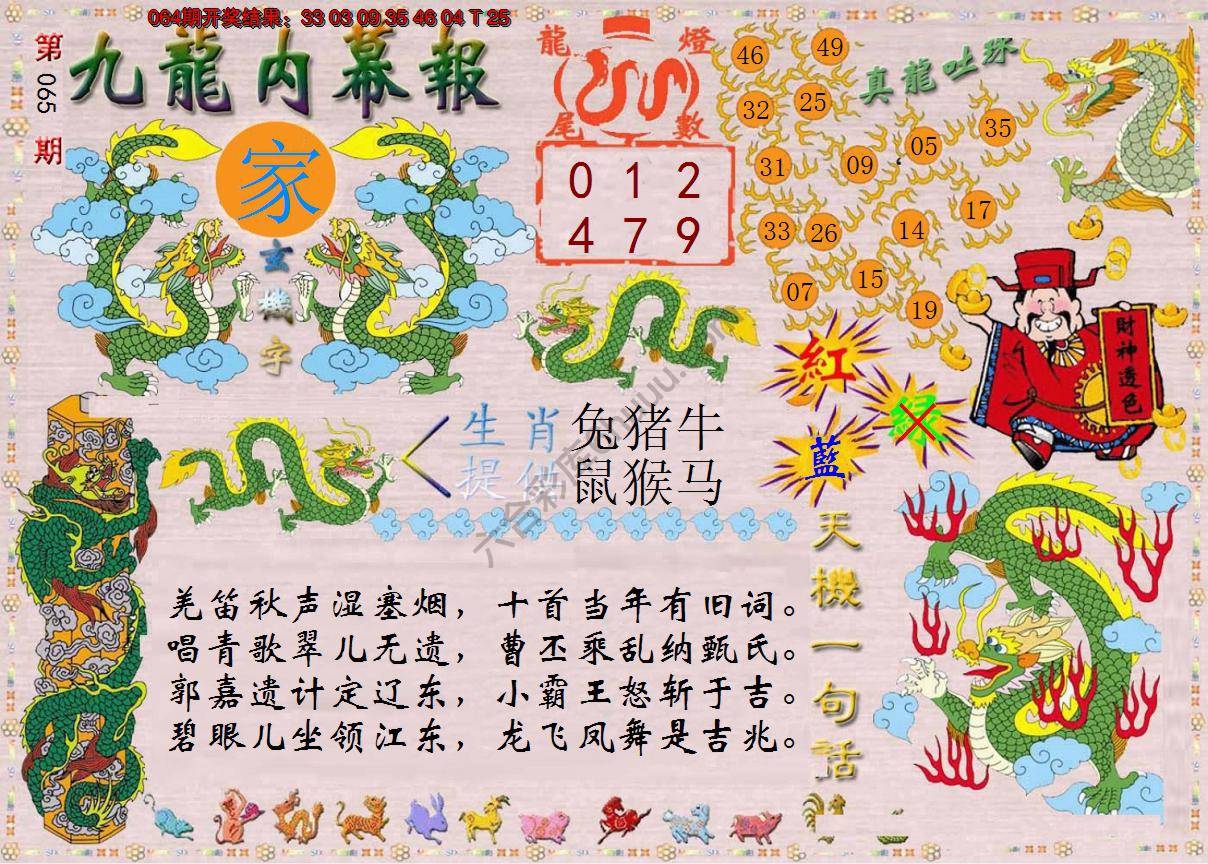 064期开奖结果：33 03 09 35 46 04 T 25
第065期
九龍内幕報
家
玄機字
龍燈
尾數
0 1 2
4 7 9
真龍吐珠
46 49
32 25
31 09 05 35
33 26 14 17
07 15 19
財神透色
紅
绿
藍
生肖 兔猪牛
提供 鼠猴马
羌笛秋声湿塞烟，十首当年有旧词。
唱青歌翠儿无遗，曹丕乘乱纳甄氏。
郭嘉遗计定辽东，小霸王怒斩于吉。
碧眼儿坐领江东，龙飞凤舞是吉兆。
天機一句話